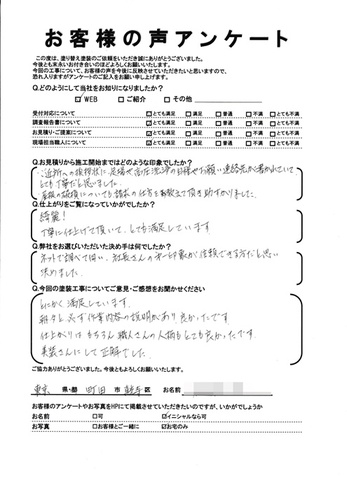 お客様の声アンケート
この度は、塗り替え塗装のご依頼をいただき誠にありがとうございました。
今後とも末永いお付き合いのほどよろしくお願いいたします。
今回の工事について、お客様の声を今後に反映させていただきたいと思いますので、
恐れ入りますがアンケートのご記入をお願い申し上げます。
Q.どのようにして当社をお知りになりましたか？
☑WEB □ご紹介 □その他
受付対応について ☑とても満足 □満足 □普通 □不満 □とても不満
調査報告書について ☑とても満足 □満足 □普通 □不満 □とても不満
お見積り・ご提案について ☑とても満足 □満足 □普通 □不満 □とても不満
現場担当職人について ☑とても満足 □満足 □普通 □不満 □とても不満
Q.お見積りから施工開始まではどのような印象でしたか？
ご近所への挨拶状に、足場や高圧洗浄の日程やお願い、連絡先が書かれていて
とても丁寧だと思いました。
Q.仕上がりをご覧になっていかがでしたか？
綺麗！
丁寧に仕上げて頂いて、とても満足しています
Q.弊社をお選びいただいた決め手は何でしたか？
ネットで調べて伺い、社長さんの第一印象が信頼できる方だと思い
決めました。
Q.今回の塗装工事についてご意見・ご感想をお聞かせください
とにかく満足しています。
細々と必ず作業内容の説明があり良かったです
仕上がりはもちろん職人さんの人柄もとても良かったです
美装さんにして正解でした
ご協力ありがとうございました。今後ともよろしくお願いいたします。
東京 県・都 町田 市 区 お名前
お客様のアンケートやお写真をHPにて掲載させていただきたいのですが、いかがでしょうか
お名前 □可 ☑イニシャルなら可
お写真 □お客様とご一緒に ☑お宅のみ